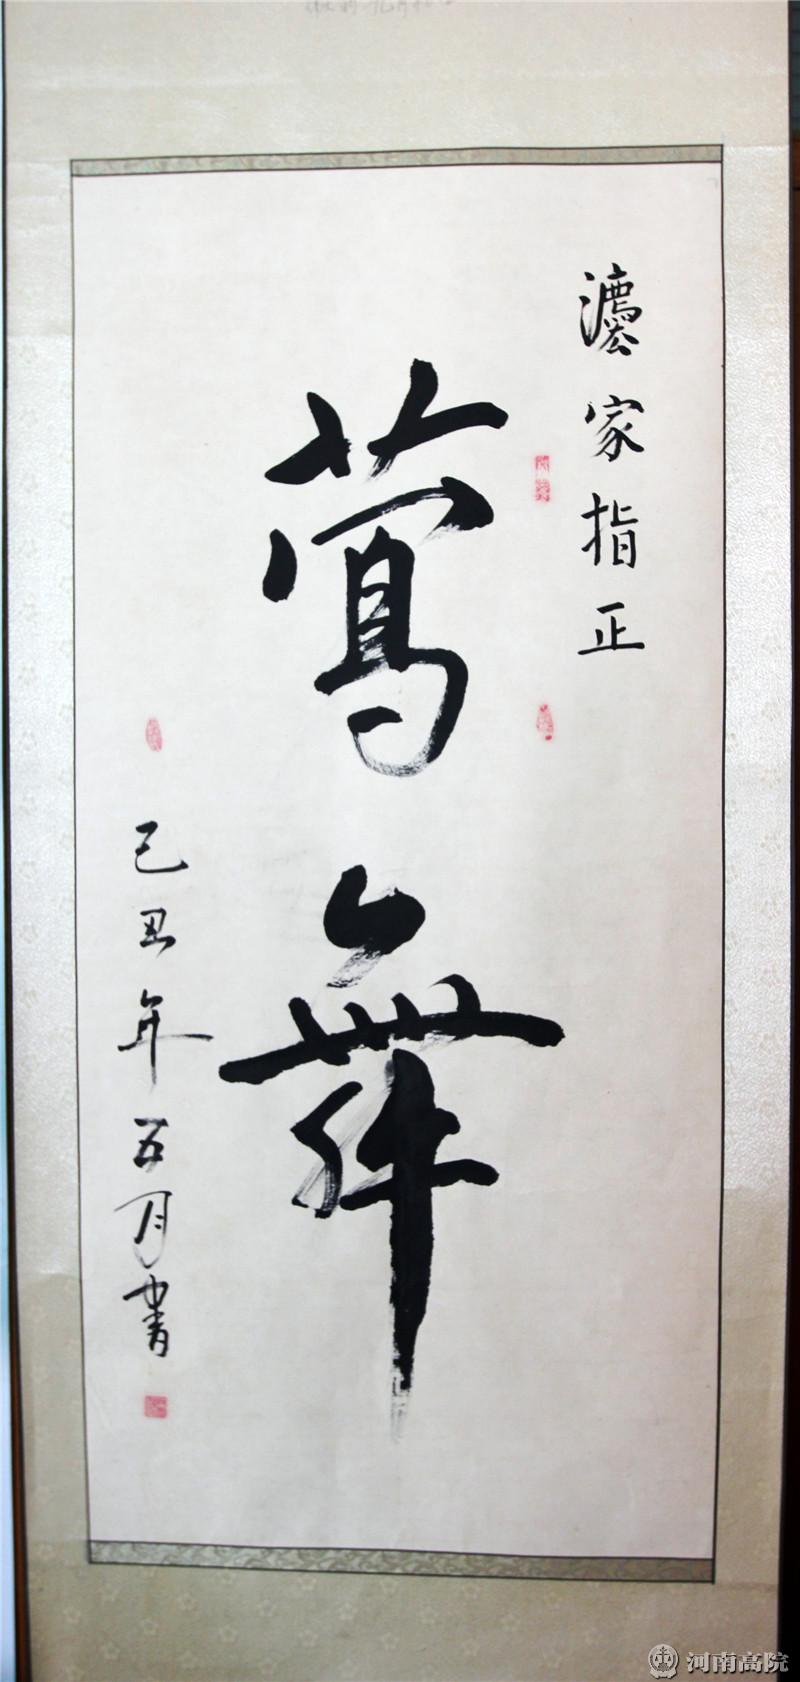 灋家指正
鶯舞
己丑年五月書
河南高院